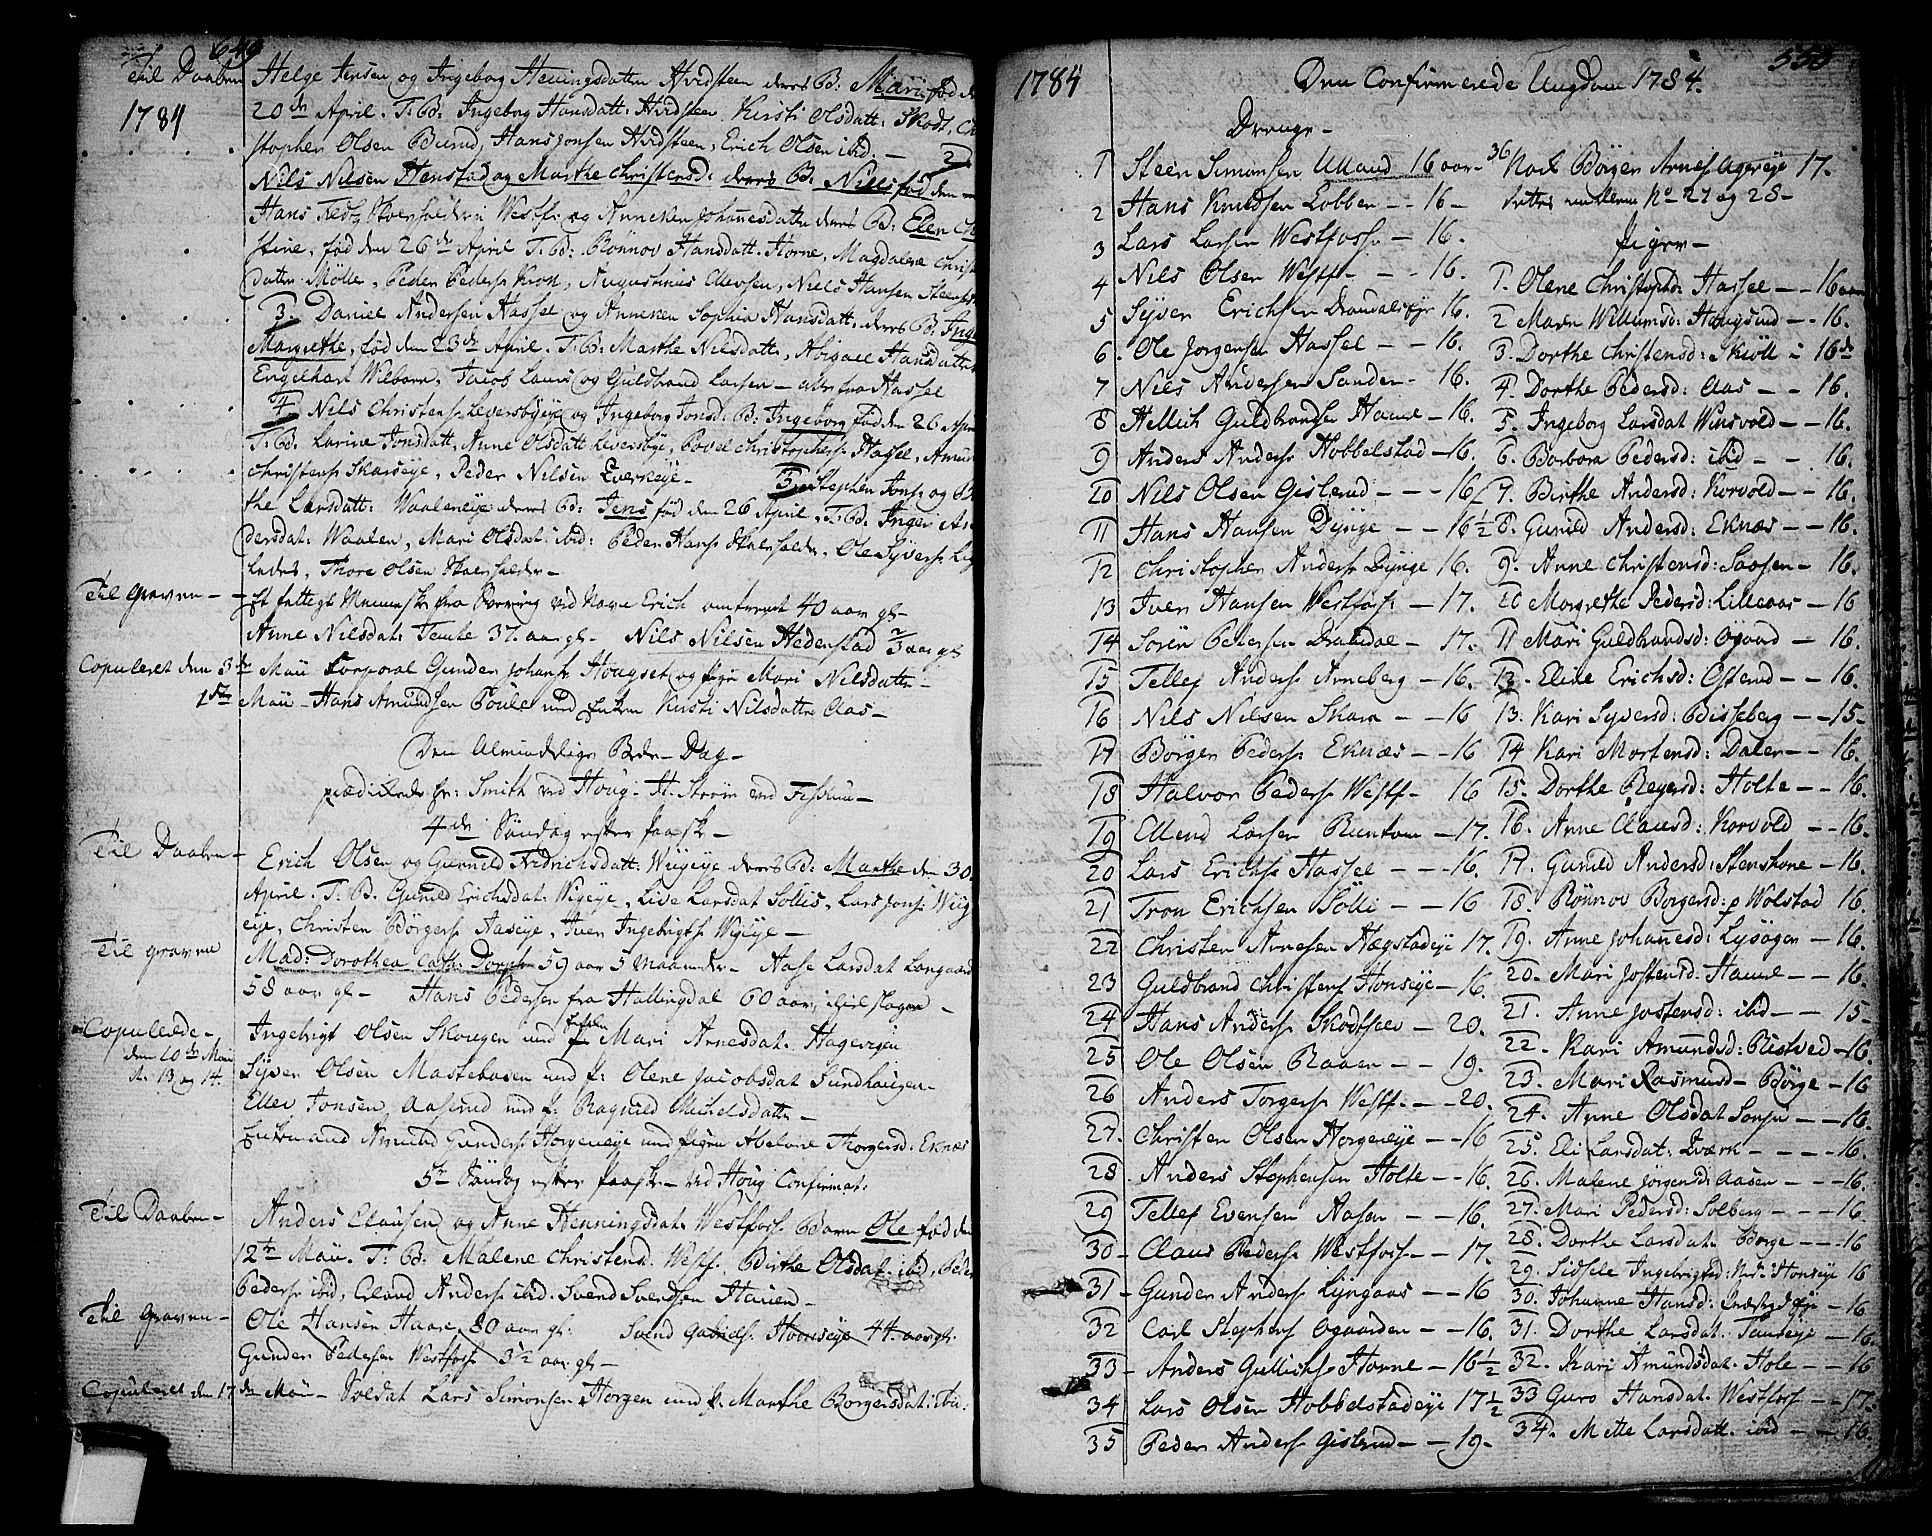 649
Til Daaben
1784
Helge Jensen og Ingeborg Henningsdatter Hvidsteen deres B: Mari fød d
20de April. T: B: Ingeborg Hansdatt: Hvidsteen, Kirsti Olsdatt: Skodt, Chri
stopher Olsen Burud, Hans Jonsen Hvidsteen, Erich Olsen ibid. — 2)
Nils Nilsen Henstad og Marthe Christensd: deres B: Niels fød den —
Hans Fedtz Skoeholder i Westf: og Anneken Johannesdatter deres B: Elen Chri
stine, fød den 26de April T: B: Rönnov Hansdatt: Horne, Magdalene Christ
datter Mölle, Peder Peders: Krok, Augustinus Allevsen, Niels Hansen Steens
3. Daniel Andersen Hassel og Anneken Sophia Hansdatt: deres B: Inge
Margrethe, fød den 23de April. T: B: Marthe Nilsdatt:, Abigael Hansdatter
Engelhart Wilborn, Jacob Lauris og Guldbrand Larsen — alle fra Hassel
4 Nils Christens: Leversbyeye og Ingeborg Jonsd: B: Ingeborg fød den 26 Apri
T: B: Larine Jonsdatt, Anne Olsdatt Leversbye, Povel Christophers: Hassel, Amun
Christens: Skarseye, Peder Nilsen Tverkeye — 5. Stephen Jons: og B
the Larsdatt: Waaleneye deres B: Jens fød den 26 April, T: B: Inger An
dersdat: Waalen, Mari Olsdat: ibid: Peder Hans: Skoeholder, Ole Syvers: L
ledet, Thore Olsen Skoeholder —
Til Graven —
Et fattigt Menneske fra Sverrig ved Navn Erich omtrent 40 aar gl —
Anne Nilsdat: Temte 37. aar gl — Nils Nilsen Hedenstad 2/3 aar gl
Copuleret den 3de Maii Corporal Gunder Johans: Hougset og Pige Mari Nilsdatter
15de Maii — Hans Amundsen Foule med Enken Kirsti Nilsdatter Aas —
Den Almindelige Bede-Dag —
prædikede Hr: Smith ved Houg — H: Ström ved Fiskum —
4de Søndag efter Paaske —
Til Daaben —
Erich Olsen og Gunnild Fridrichsdatt: Wigeye deres B: Marthe den 30.
April. T: B: Gunild Erichsdat: Wigeye, Live Larsdat Sollie, Lars Jons: Wiig
eye, Christen Börgers: Aaseye, Iver Ingebrigts: Wigeye —
Til Graven
Mad: Dorothea Cath: Dorph 59 aar 5 Maaneder — Aase Larsdat Langaard
58 aar gl — Hans Pedersen fra Hallingdal 60 aar, ihielslagen —
Copulerede —
den 20de Maii
Ingebrigt Olsen Skougen med Enken Mari Arnesdat: Hagevigen
Syver Olsen Mastebasen med P: Olene Jacobsdat Sundhaugen —
Ellev Jonsen Aaserud med P: Ragnild Michelsdatter —
Enkemand Amund Gunders: Horgeneye med Pigen Abelone Thorgersd: Eknæs
5te Søndag efter Paaske — ved Houg Confirmat:
Til Daaben —
Anders Clausen og Anne Henningsdat: Westfoss: Barn Ole fød den
12te Maii. T: B: Malene Christensd: Westf:, Birthe Olsdat: ibid, Peder
Peders: ibid, Erland Anders: ibid. Svend Svendsen Hauen —
Til Graven —
Ole Hansen Haare 80 aar gl: Svend Gabriels: Honseye 44. aar gl:
Gunder Pedersen Westfoss 3½ aar gl —
Copuleret den 17de Maii — Soldat Lars Simonsen Horgen med P: Marthe Borgersdat: ibid:
1784
Den Confirmerede Ungdom 1784.
550
Drenge —
1 Steen Simonsen Ulland 16 aar —
2 Hans Knudsen Lobben — 16 —
3 Lars Larsen Westfoss: — 16.
4 Nils Olsen Westf — 16.
5 Syver Erichsen Dramdalseye 16.
6. Ole Jörgensen Hassel — 16.
7 Nils Andersen Sanden — 16.
8 Hellich Guldbrandsen Hame — 16.
9 Anders Anders: Hobbelstad — 16.
10 Nils Olsen Gislerud — 16.
11 Hans Hansen Dynge — 16½
12 Christopher Anders: Dynge 16.
13 Iver Hansen Westfoss: — 17.
14 Sören Pedersen Dramdal — 17.
15 Tellef Anders: Arneberg — 16.
16 Nils Nilsen Skara — 16
17 Börger Peders: Eknæs — 16
18 Halvor Peders: Westf — 16
19 Ellend Larsen Runtom — 17.
20 Lars Erichs: Hassel — 16.
21 Tron Erichsen Sölli — 16
22 Christen Arnesen Hægstadeye 17.
23 Guldbrand Christens: Honseye — 16.
24 Hans Anders: Skodtselv — 20.
25 Ole Olsen Raaen — 19.
26 Anders Torgers: Westf. — 20.
27. Christen Olsen Horgeneye — 16
28 Anders Stephensen Holte — 16.
29 Tellef Evensen Aasen — 16.
30 — Claus Peders: Westfoss: — 17.
31 — Gunder Anders: Lyngaas — 16
32 Carl Stephens: Ogaarden — 16.
33 — Anders Gullichs: Horne — 16½
34 Lars Olsen Hobbelstadeye 17½
35 Peder Anders: Gislerud — 19 —
36 Noch Börger Arnes: Ageröye 17.
settes mellem No 27 og 28 —
Piger —
1. Olene Christophd: Hassel — 16 aar
2 Maren Willumsd: Haugsund — 16.
3. Dorthe Christensd: Skiöll — 16de
4. Dorthe Pedersd: Aas — 16.
5. Ingeborg Larsdat Winsvold — 16.
6. Barbara Pedersd: ibid — 16.
7. Birthe Andersd: Korvold — 16.
8. Gunild Andersd: Eknæs — 16.
9. Anne Christensd: Saasen — 16.
10 Margrethe Pedersd: Lilleaas — 16
11 Mari Guldbrandsd: Opsand — 16.
12. Eline Erichsd: Ofterud — 16.
13. Kari Syversd: Bisseberg — 15 —
14 Kari Mortensd: Dalen — 16.
15. Dorthe Reyersd: Holte — 16.
16. Anne Clausd: Korvold — 16.
17. Gunild Andersd: Stenshone — 16.
18. Rönnov Borgersd: Wolstad 16.
19. Anne Johannesd: Lysager — 16.
20. Mari Jostensd: Hame — 16.
21. Anne Jostensd: ibid — 15 —
22. Kari Amundsd: Ristved — 16.
23. Mari Rasmusd — Börge — 16
24. Anne Olsdat Sorsen — 16.
25. Eli Larsdat: Tværk — 16.
26. Malene Jörgensd: Aasen — 16.
27. Mari Pedersd: Solberg — 16.
28. Dorthe Larsdat: Borge — 16
29. Sidsele Ingebrigtsd: Ned: Honseye 16
30. Johanne Hansd: Præstegd eye — 16
31. Dorthe Larsdat: Temteye — 16.
32. Kari Amundsdat: Hole — 16
33 Guro Hansdat: Westfoss — 17.
34. Mette Larsdatt. ibid — 16.